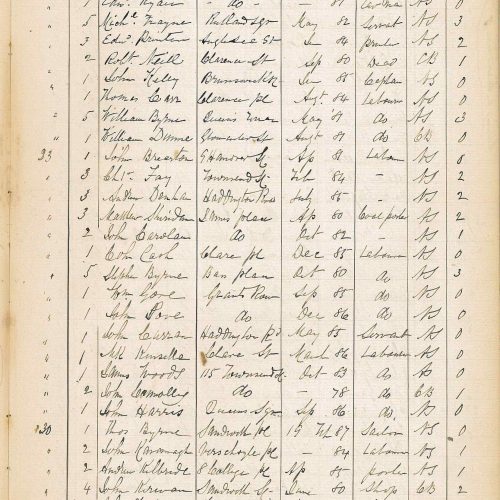 " 5 Mich^l Frayne Rutland Sqr May 82 Servat NS 3
" 3 Edwd Brinton Anglesea St Jan 84 Printer NS 2
" 2 Robt Neill Clarence St Sep 80 Dead CB 1
" 1 John Keley Brunswick St Jan 85 NS 0
" 1 Thomas Carr Clarence pl Augt 84 Labourer NS 0
" 5 William Byrne Queens May 81 do NS 3
" 1 William Dunne Gloucester St Augt 81 do CB 0
33 1 John Brereton G Hanover Sq Ap 81 Labourer NS 0
" 3 Chr. Fay Townsend St Feb 84 - NS 2
" 3 Andrew Denham Haddington Road July 85 - NS 2
" 3 Matthew Sheridan place Ap 80 NS 2
" 2 John Carolan do Oct 82 - NS 1
" 1 Cash Clare pl Dec 85 Labourer NS 0
" 5 Steph Byrne Bass place Oct 80 do NS 3
" 1 Wm Gore Grants Row Sep 85 do NS 0
" 1 John do Dec 86 do NS 0
" 1 John Curran Haddington Rd May 85 Servant NS 0
" 1 Kinsella Clare St March 86 Labourer NS 0
" 1 James Woods 115 Townsend St Oct 83 do NS 0
" 2 John Connolly do - 78 do CB 1
" 1 John Harris Queens Sqr Sep 86 do NS 0
30 1 Thos Byrne Sandwith pl 19 Feb 87 Sailor NS 0
" 2 John Kavanagh Verschoyle pl - 84 Labourer NS 1
" 2 Andrew Kilbride 8 College pl Ap 85 porter NS 1
" 4 John Kirwan Sandwith St June 80 Shop CB 2